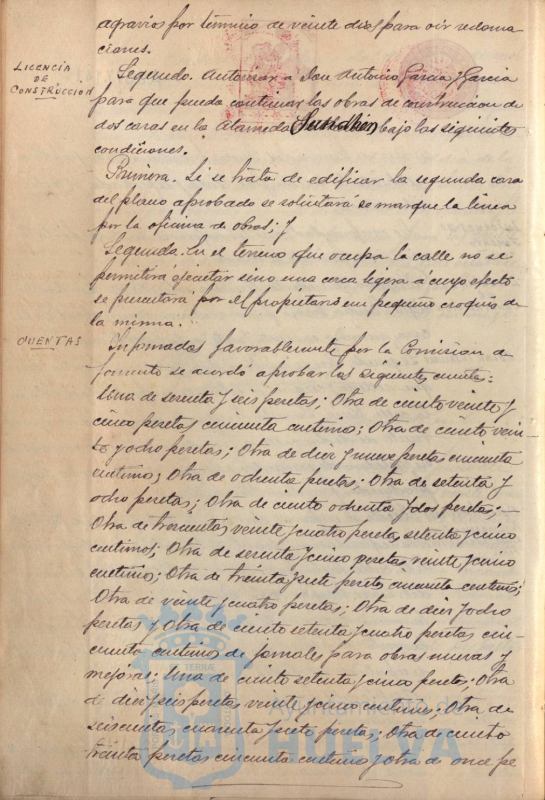 agravios por término de veinte dias para oir reclama
ciones.
LICENCIA
DE
CONSTRUCCION
Segundo. Autorizar a Don Antonio Garcia y Garcia
para que pueda continuar las obras de construccion de
dos casas en la Alameda Sundheim bajo las siguientes
condiciones.
Primera. Si se trata de edificar la segunda casa
del plano aprobado se solicitará se marque la linea
por la oficina de obras; y
Segunda. En el terreno que ocupa la calle no se
permitirá ejecutar sino una cerca ligera á cuyo efecto
se presentará por el propietario un pequeño croquis de
la misma.
CUENTAS
Informadas favorablemente por la Comision de
fomento se acordó aprobar las siguientes cuentas:
Una de sesenta y seis pesetas; Otra de ciento veinte y
cinco pesetas cincuenta centimos; Otra de ciento vein-
te y ocho pesetas; Otra de diez y nueve pesetas cincuenta
centimos; Otra de ochenta pesetas; Otra de setenta y
ocho pesetas; Otra de ciento ochenta y dos pesetas;
Otra de trescientas veinte y cuatro pesetas setenta y cinco
centimos; Otra de sesenta y cinco pesetas veinte y cinco
centimos; Otra de treinta y siete pesetas cincuenta centimos;
Otra de veinte y cuatro pesetas; Otra de diez y ocho
pesetas y Otra de ciento setenta y cuatro pesetas cin-
cuenta centimos de jornales para obras nuevas y
mejoras; Una de ciento setenta y cinco pesetas; Otra
de diez y seis pesetas veinte y cinco centimos; Otra de
seiscientas cuarenta y siete pesetas; Otra de ciento
treinta pesetas cincuenta centimos y otra de once pe
TERRAE
HUELVA